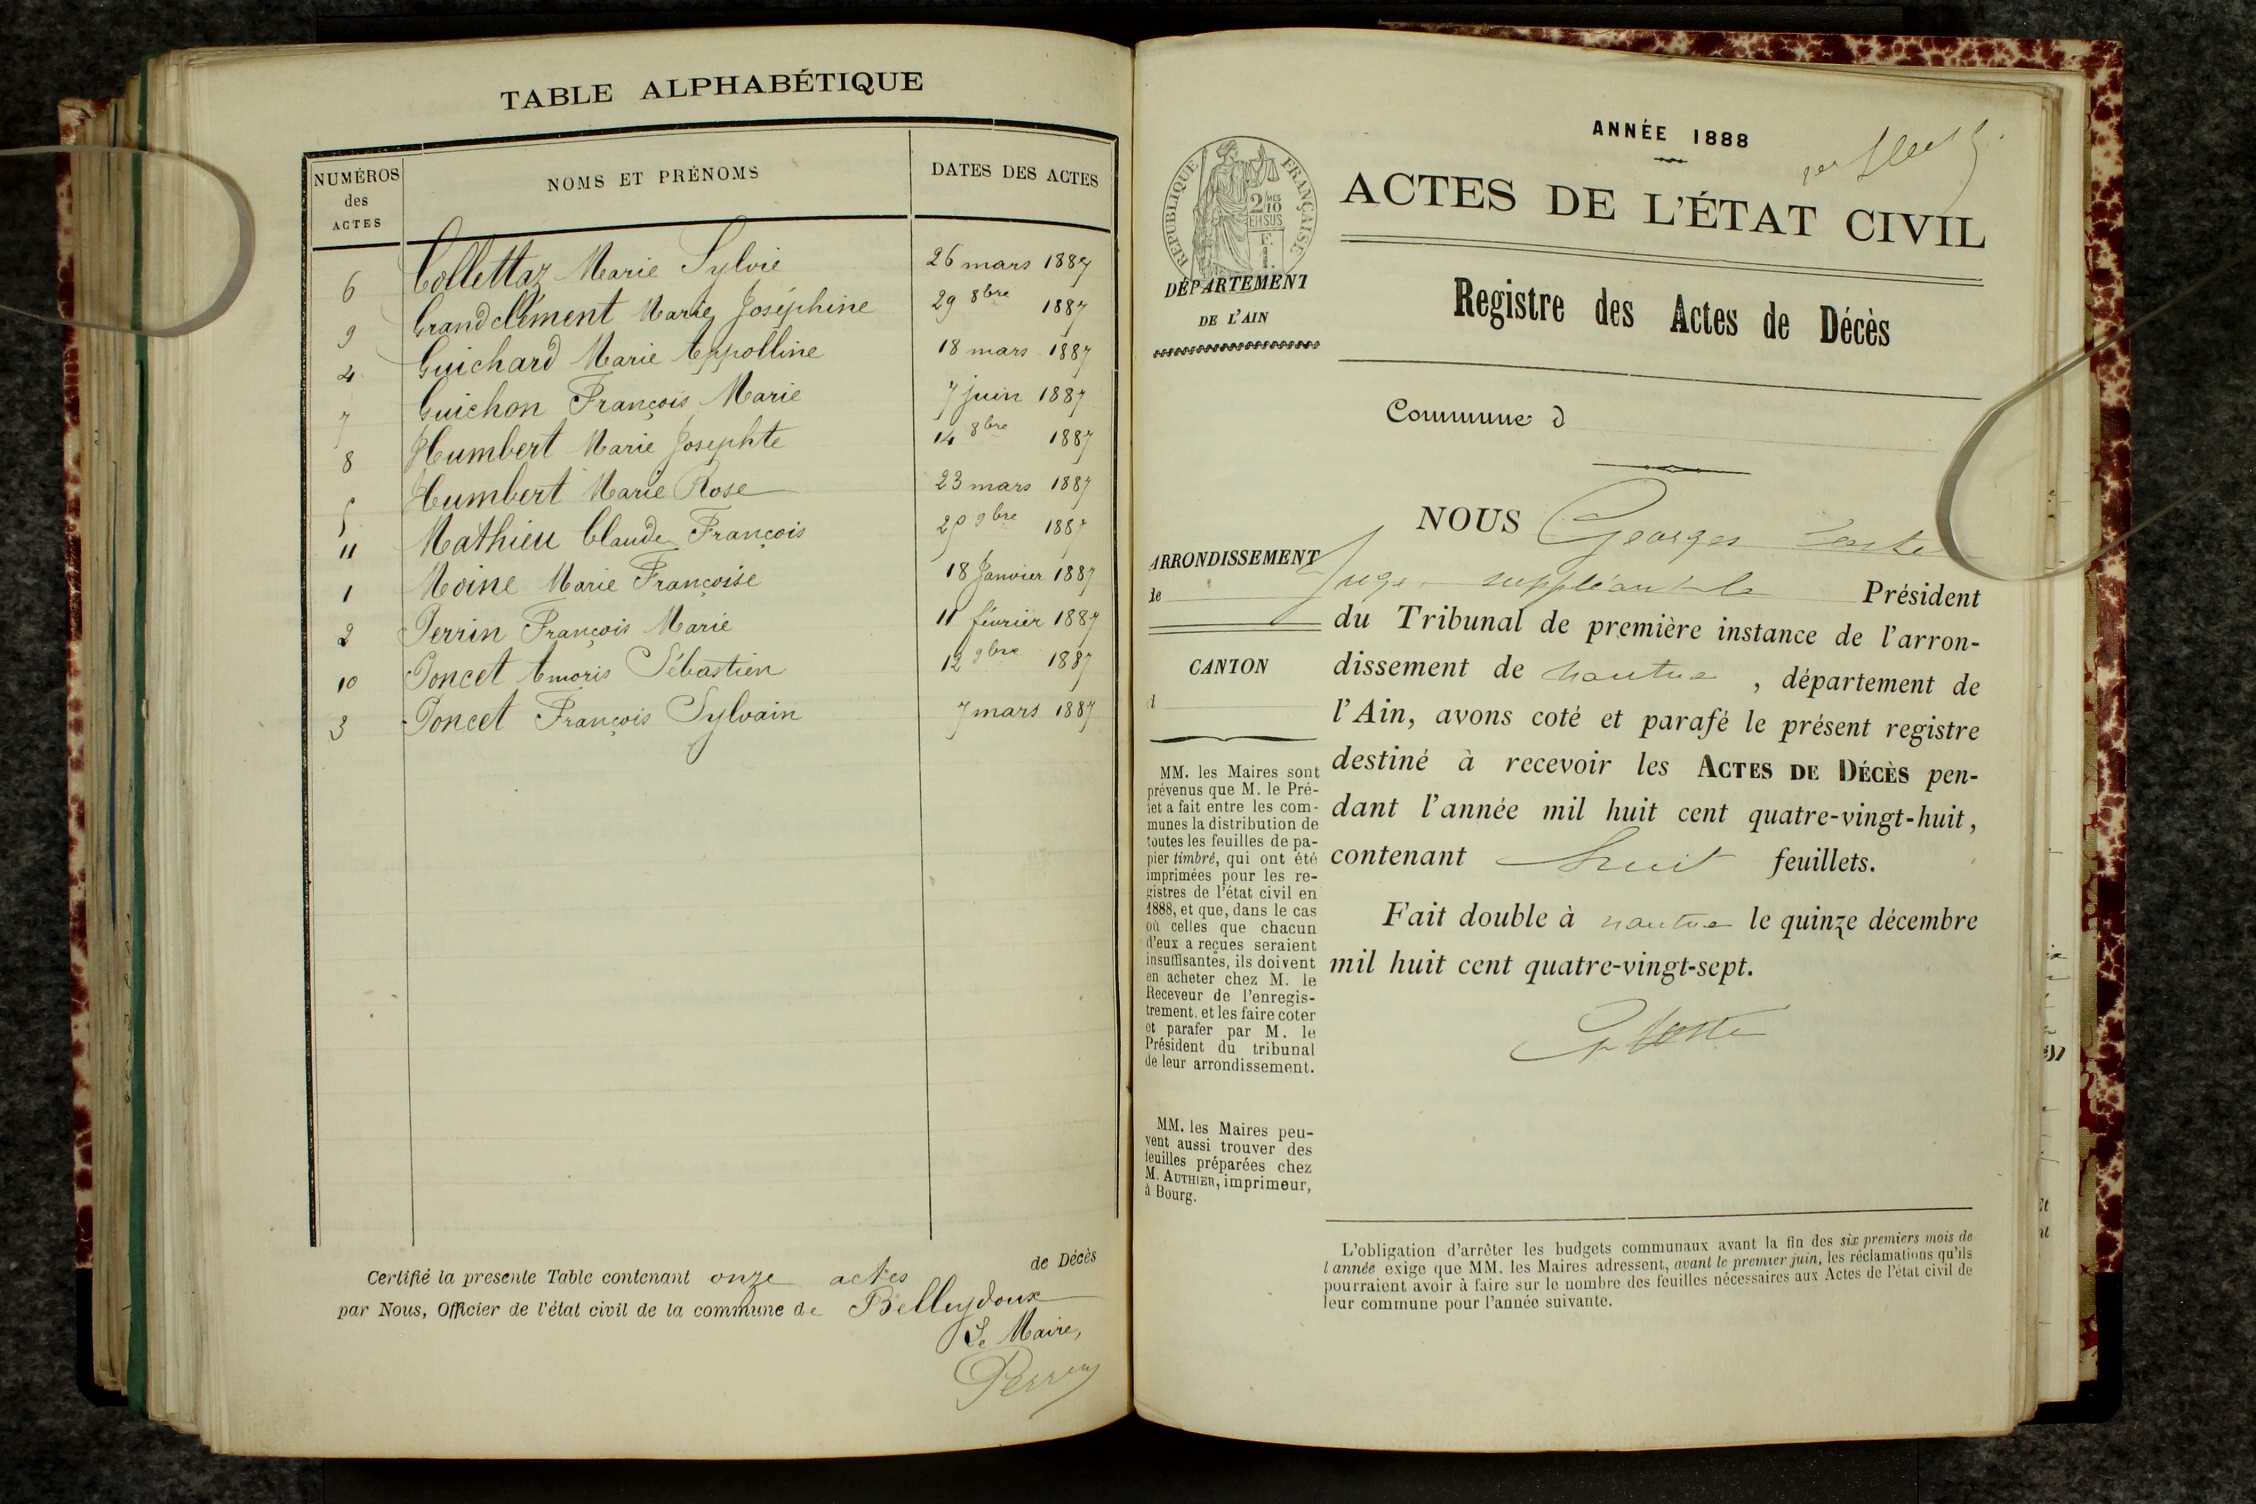 TABLE ALPHABÉTIQUE
NUMÉROS des ACTES NOMS ET PRÉNOMS DATES DES ACTES
6 Collettaz Marie Sylvie 26 mars 1887
9 Grandclément Marie Joséphine 29 8bre 1887
4 Guichard Marie Appolline 18 mars 1887
7 Guichon François Marie 7 juin 1887
8 Humbert Marie Josephte 14 8bre 1887
5 Humbert Marie Rose 23 mars 1887
11 Mathieu Claude François 9bre 1887
1 Moine Marie Françoise 18 Janvier 1887
2 Perrin François Marie 11 février 1887
10 Poncet Amoris Sébastien 12 9bre 1887
3 Poncet François Sylvain 7 mars 1887
Certifié la presente Table contenant onze actes de Décès
par Nous, Officier de l'état civil de la commune de Belleydoux
Le Maire,
Perrin
ANNÉE 1888
ACTES DE L'ÉTAT CIVIL
RÉPUBLIQUE FRANÇAISE
2 MES
10
EN SUS
F.
1.
DÉPARTEMENT
DE L'AIN
Registre des Actes de Décès
Commune d
NOUS Georges
ARRONDISSEMENT
de
CANTON
d
Juge suppléant Président
du Tribunal de première instance de l'arron-
dissement de nantua, département de
l'Ain, avons coté et parafé le présent registre
destiné à recevoir les ACTES DE DÉCÈS pen-
dant l'année mil huit cent quatre-vingt-huit,
contenant huit feuillets.
Fait double à nantua le quinze décembre
mil huit cent quatre-vingt-sept.
MM. les Maires sont
prévenus que M. le Pré-
fet a fait entre les com-
munes la distribution de
toutes les feuilles de pa-
pier timbré, qui ont été
imprimées pour les re-
gistres de l'état civil en
1888, et que, dans le cas
où celles que chacun
d'eux a reçues seraient
insuffisantes, ils doivent
en acheter chez M. le
Receveur de l'enregis-
trement, et les faire coter
et parafer par M. le
Président du tribunal
de leur arrondissement.
MM. les Maires peu-
vent aussi trouver des
feuilles préparées chez
M. AUTHIER, imprimeur,
à Bourg.
L'obligation d'arrêter les budgets communaux avant la fin des six premiers mois de
l'année exige que MM. les Maires adressent, avant le premier juin, les réclamations qu'ils
pourraient avoir à faire sur le nombre des feuilles nécessaires aux Actes de l'état civil de
leur commune pour l'année suivante.